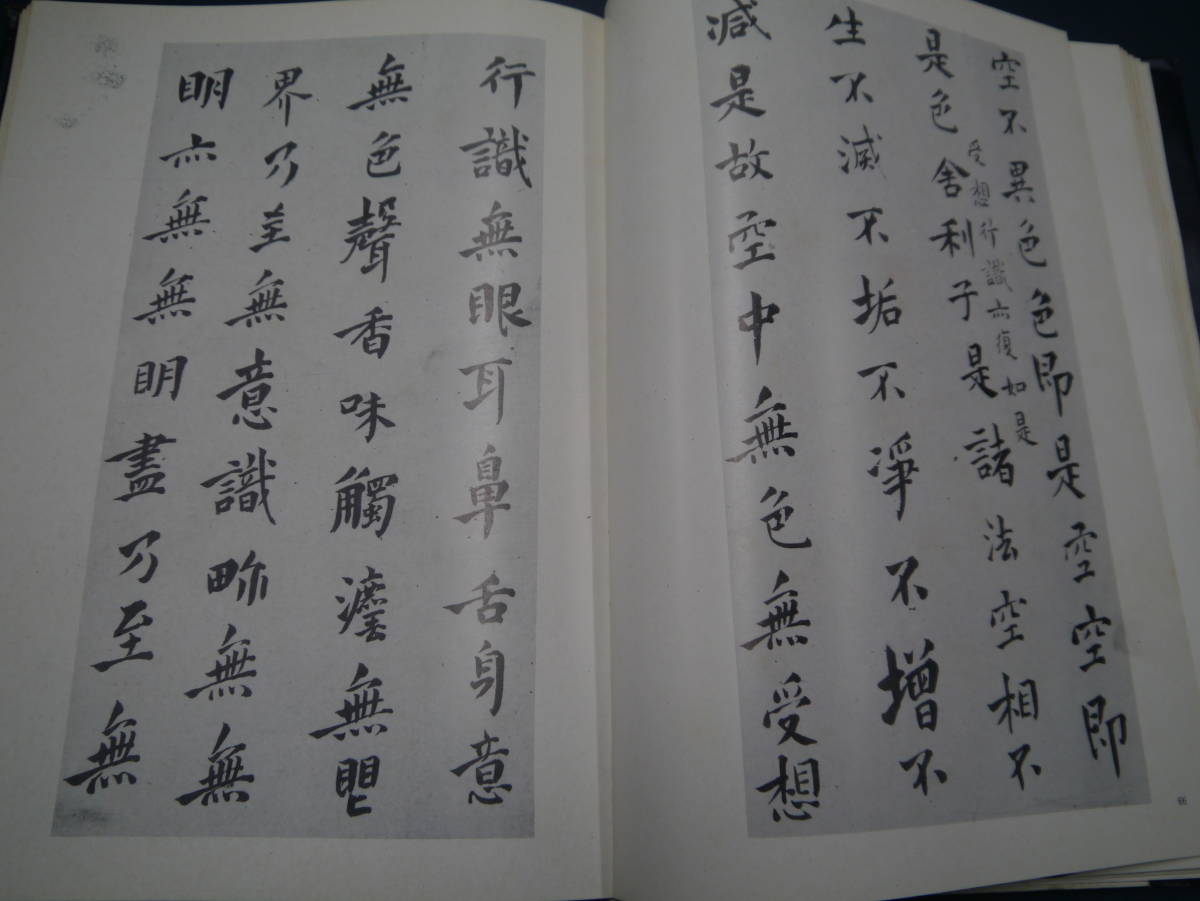 空不異色色即是空空即
受想行識亦復如是
是色舍利子是諸法空相不
生不滅不垢不淨不增不
減是故空中無色無受想
行識無眼耳鼻舌身意
無色聲香味觸灋無眼
界乃至無意識畍無無
眀亦無無眀盡乃至無
66